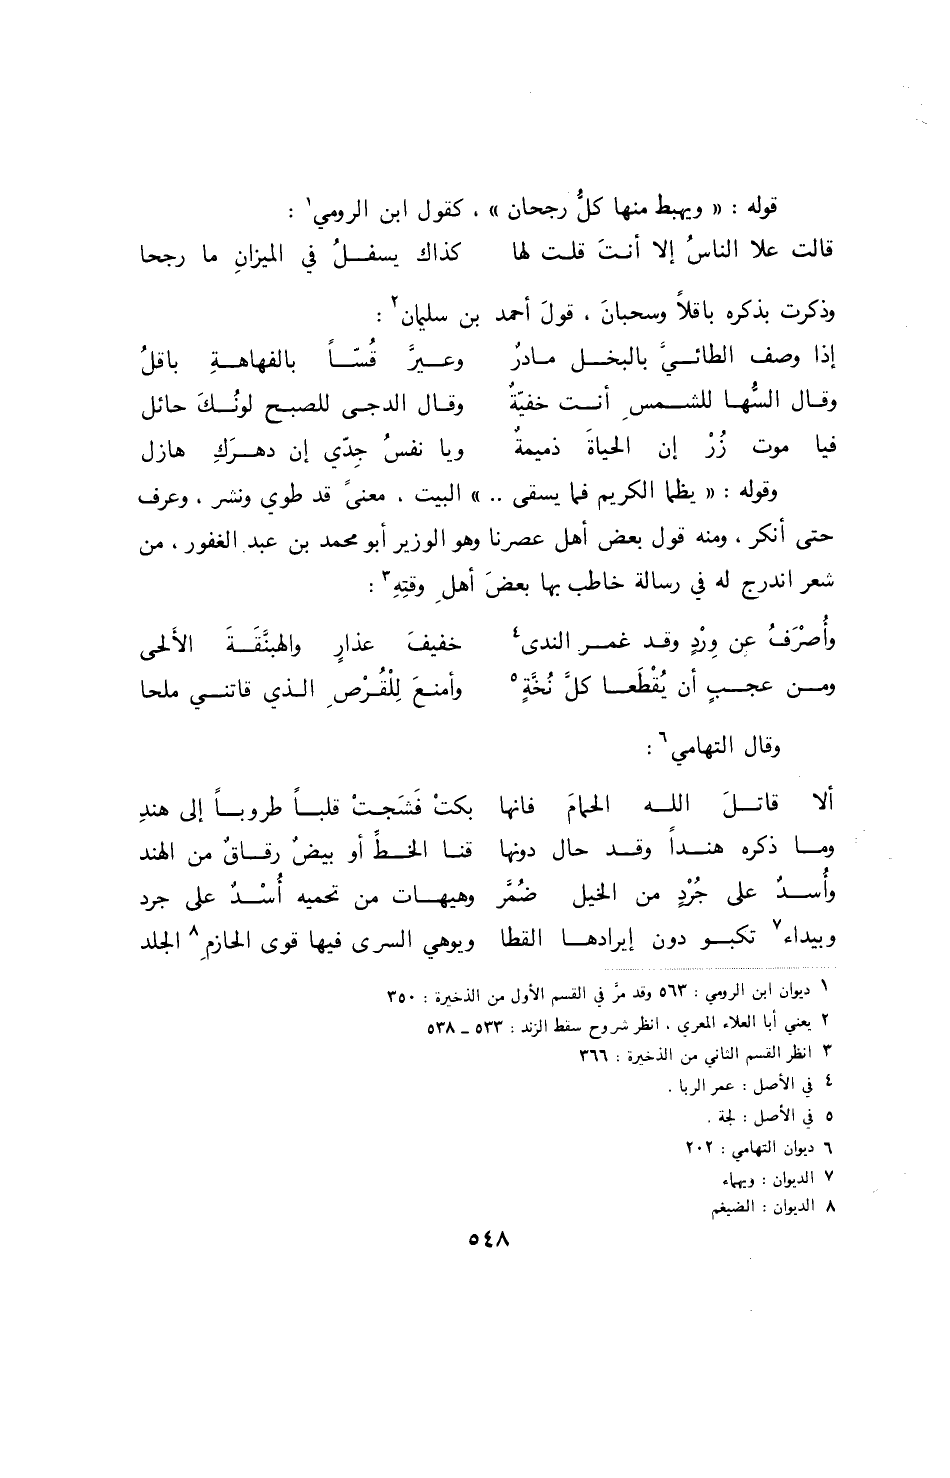 قوله : « ويهبط منها كلُّ رجحان » ، كقول ابن الرومي١ :
قالت علا الناسُ إلا أنتَ قلت لها كذاك يسفلُ في الميزانِ ما رجحا
وذكرت بذكره باقلاً وسحبانَ ، قولَ أحمد بن سليمان٢ :
إذا وصف الطائيَّ بالبخل مادرٌ وعيرَّ قُسّاً بالفهاهةِ باقلُ
وقال السُّها للشمسِ أنت خفيّةٌ وقال الدجى للصبح لونُكَ حائل
فيا موت زُرْ إن الحياةَ ذميمةٌ ويا نفسُ جِدّي إن دهرَكِ هازل
وقوله : « يظما الكريم فما يسقى .. » البيت ، معنىً قد طوي ونشر ، وعرف
حتى أنكر ، ومنه قول بعض أهل عصرنا وهو الوزير أبو محمد بن عبد الغفور ، من
شعر اندرج له في رسالة خاطب بها بعضَ أهلِ وقتِهِ٣ :
وأُصْرَفُ عن وِرْدٍ وقد غمر الندى٤ خفيفَ عذارٍ والهبنَّقَةَ الألحى
ومن عجبٍ أن يُقْطَعا كلَّ نُخَّةٍ٥ وأمنعَ لِلْقُرْصِ الذي فاتني ملحا
وقال التهامي٦ :
ألا قاتلَ الله الحمامَ فانها بكتْ فَشَجتْ قلباً طروباً إلى هندِ
وما ذكره هنداً وقد حال دونها قنا الخطِّ أو بيضٌ رقاقٌ من الهند
وأُسدٌ على جُرْدٍ من الخيل ضُمَّر وهيهات من تحميه أُسْدٌ على جرد
وبيداء٧ تكبو دون إيرادها القطا ويوهي السرى فيها قوى الحازمِ٨ الجلد
١ ديوان ابن الرومي : ٥٦٣ وقد مرَّ في القسم الأول من الذخيرة : ٣٥٠
٢ يعني أبا العلاء المعري ، انظر شروح سقط الزند : ٥٣٣ ـ ٥٣٨
٣ انظر القسم الثاني من الذخيرة : ٣٦٦
٤ في الأصل : عمر الربا .
٥ في الأصل : لجة .
٦ ديوان التهامي : ٢٠٢
٧ الديوان : ويهماء
٨ الديوان : الضيغم
٥٤٨